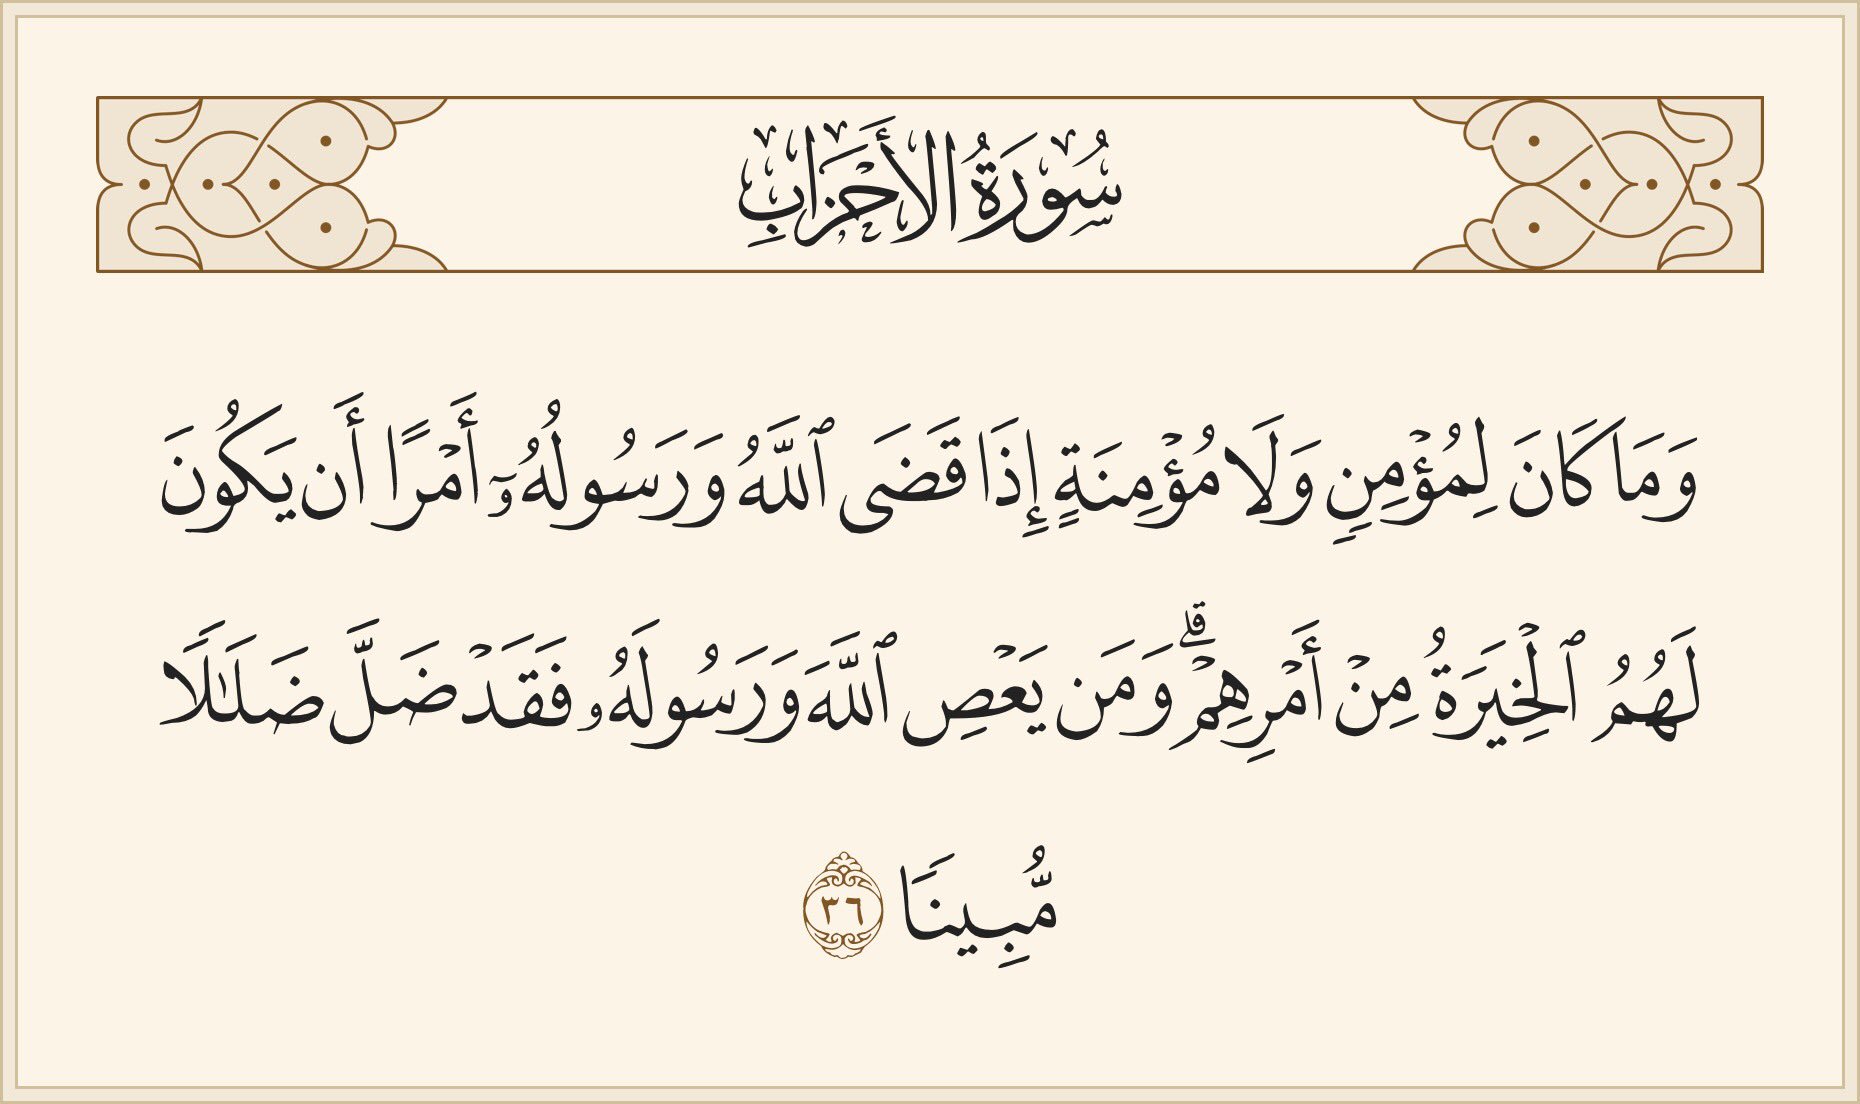 سُورَةُ الأَحْزَابِ
وَمَا كَانَ لِمُؤْمِنٍ وَلَا مُؤْمِنَةٍ إِذَا قَضَى ٱللَّهُ وَرَسُولُهُۥٓ أَمْرًا أَن يَكُونَ
لَهُمُ ٱلْخِيَرَةُ مِنْ أَمْرِهِمْ ۗ وَمَن يَعْصِ ٱللَّهَ وَرَسُولَهُۥ فَقَدْ ضَلَّ ضَلَـٰلًا
مُّبِينًا ٣٦